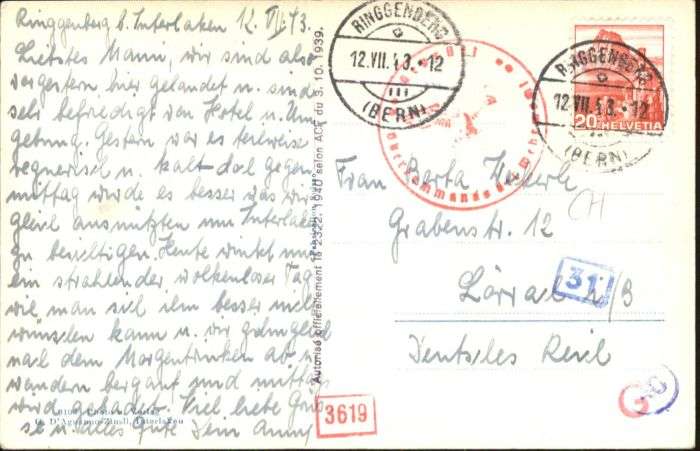 Ringgenberg b. Interlaken 12. VII. 43.
Liebstes Mami, wir sind also
vorgestern hier gelandet u. sind
sehr befriedigt von Hotel u. Um
gebung. Gestern war es teilweise
regnerisch u. kalt doch gegen
mittag wurde es besser was wir
gleich ausnützten um Interlaken
zu besichtigen. Heute winkt uns
ein strahlender, wolkenloser Tag
wie man sich ihn besser nicht
wünschen kann u. wir gehn gleich
nach dem Morgentrinken ab u.
wandern bergauf und mittags
wird gebadet. Viel liebe Grüs
se u. alles Gute Dein Anny
G. D'Aguanno-Zindl, Interlaken
Autorisé officiellement le 2322. 1940 selon ACF du 3. 10. 1939.
RINGGENBERG
12.VII.43.-12
(BERN)
Oberkommando der Wehrmacht
RINGGENBERG
12.VII.43.-12
(BERN)
20 HELVETIA
Frau Berta
Grabenstr. 12
CH
31
Lörrach/B
Deutsches Reich
3619